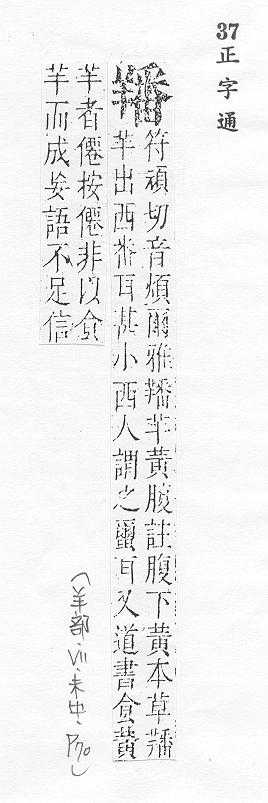 37
正字通
羳
符頑切音煩爾雅羳羊黃腹註腹下黃本草羳
羊出西番耳甚小西人謂之璽耳又道書食黃
羊者僊按僊非以食
羊而成妄語不足信
(羊部·VII·未中·P70)